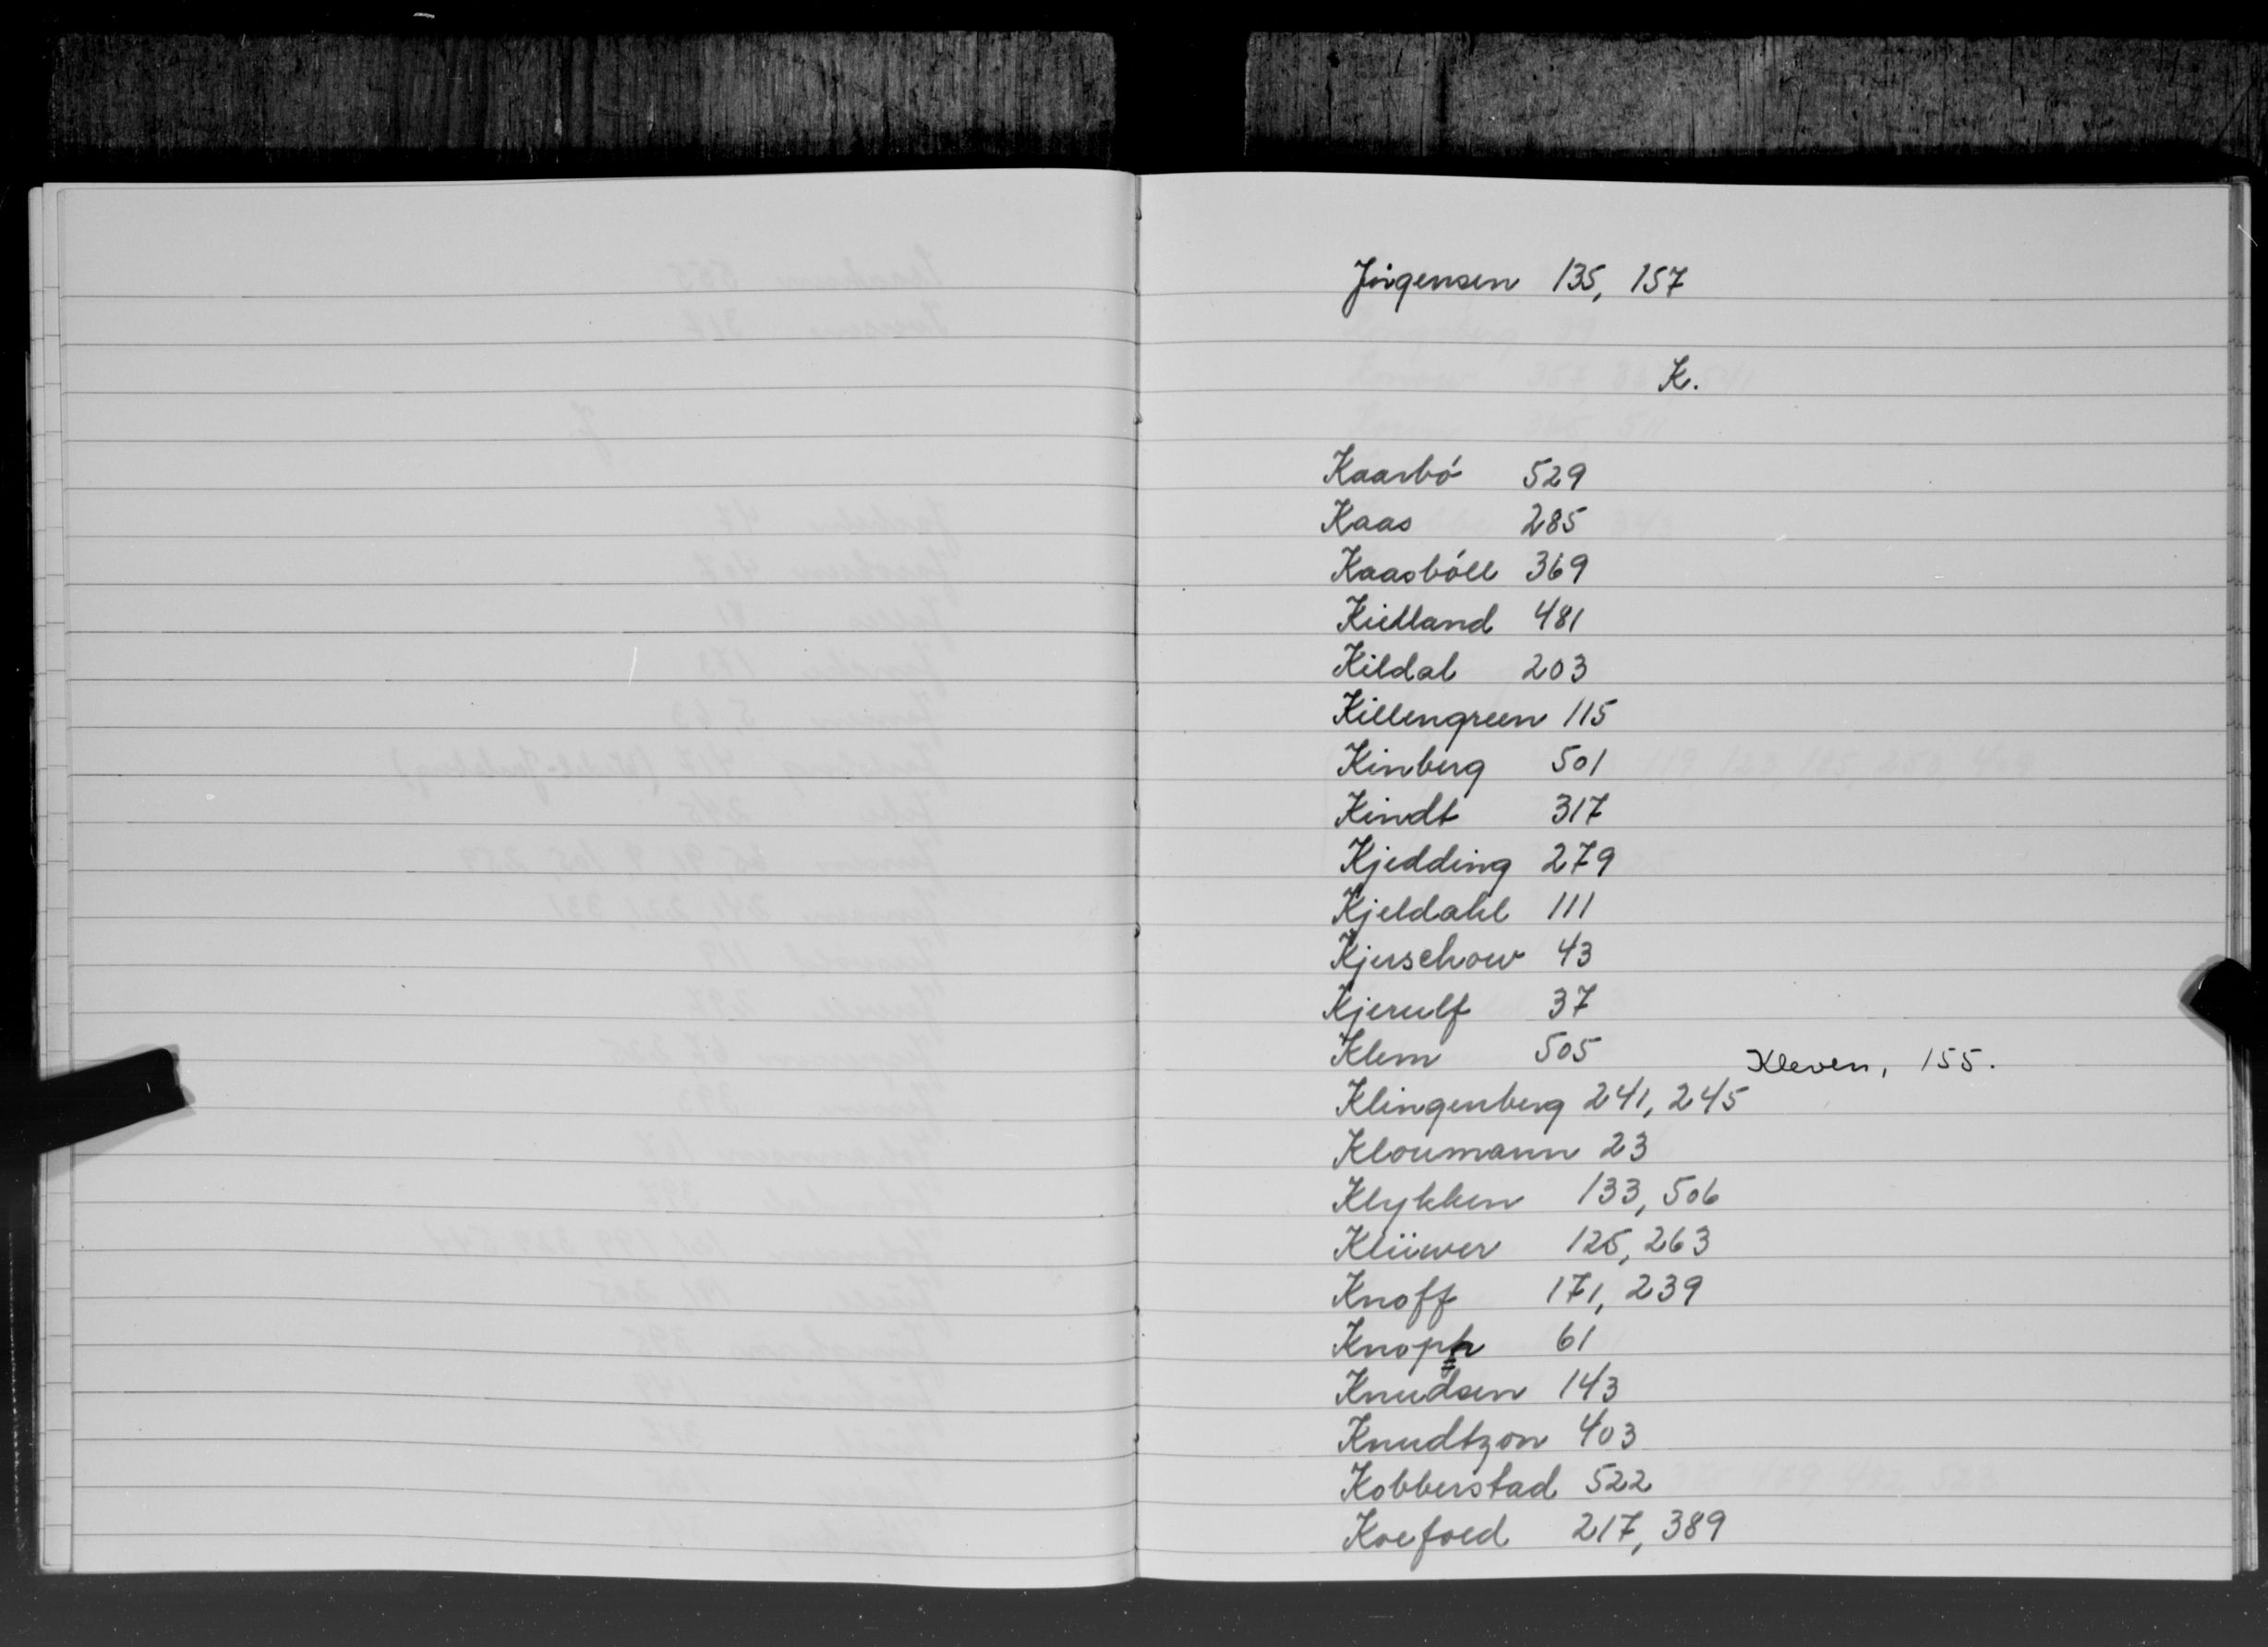 Jörgensen 135, 157
K.
Kaarbó 529
Kaas 285
Kaasbóll 369
Kielland 481
Kildal 203
Killengreen 115
Kinberg 501
Kindt 317
Kjedding 279
Kjeldahl 111
Kjerschow 43
Kjerulf 37
Klem 505
Kleven, 155.
Klingenberg 241, 245
Kloumann 23
Klykken 133, 506
Klüwer 125, 263
Knoff 171, 239
Knoph 61
Knudsen 143
Knudtzon 403
Kobberstad 522
Koefoed 217, 389